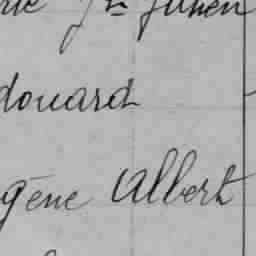 Jn Julien
douard
gène Albert